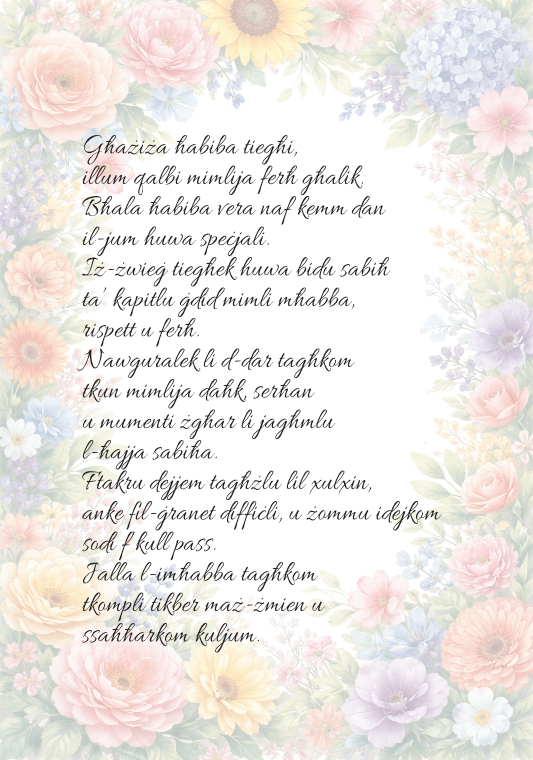 Għażiża ħabiba tiegħi,
illum qalbi mimlija ferħ għalik.
Bħala ħabiba vera naf kemm dan
il-jum huwa speċjali.
Iż-żwieġ tiegħek huwa bidu sabiħ
ta' kapitlu ġdid mimli mħabba,
rispett u ferħ.
Nawguralek li d-dar tagħkom
tkun mimlija daħk, serħan
u mumenti żgħar li jagħmlu
l-ħajja sabiħa.
Ftakru dejjem tagħżlu lil xulxin,
anke fil-ġranet diffiċli, u żommu idejkom
sodi f'kull pass.
Jalla l-imħabba tagħkom
tkompli tikber maż-żmien u
ssaħħarkom kuljum.